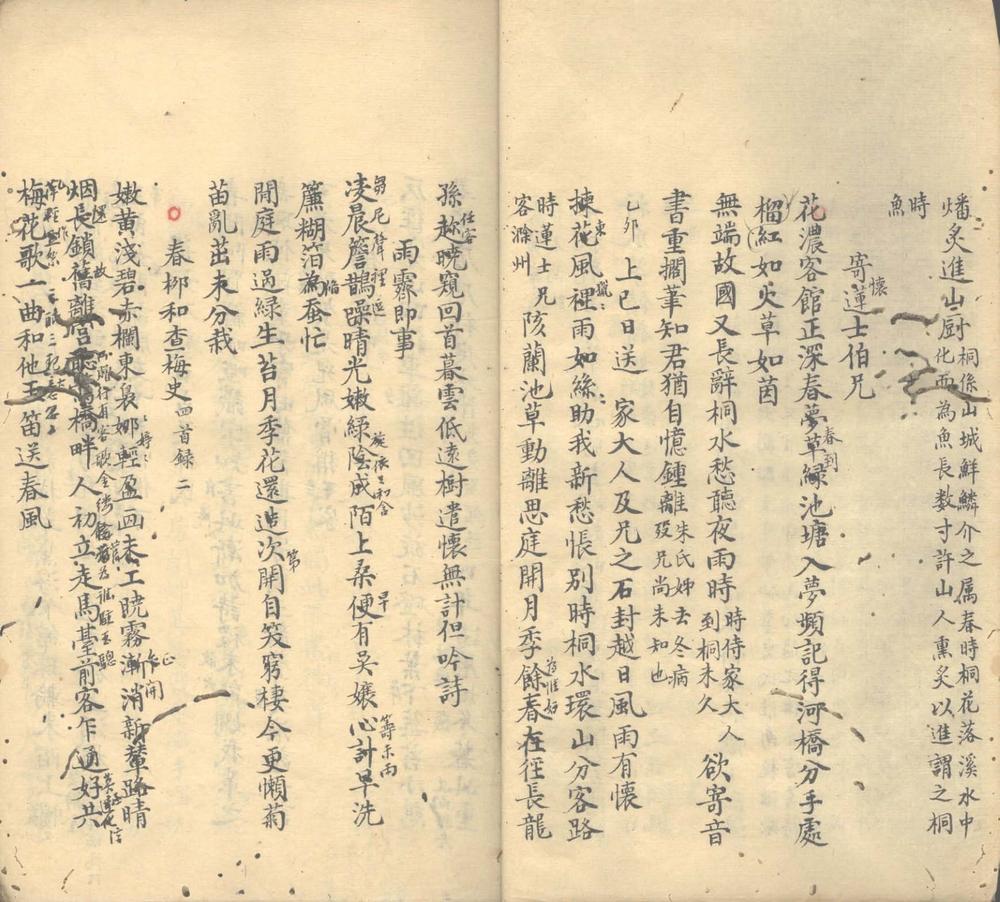 燔炙進山厨桐係山城鮮鱗介之属春時桐花落溪水中
時化而為魚長数寸許山人熏炙以進謂之桐
魚
寄懷蓮士伯兄
花濃客館正深春夢草緑池塘入夢頻記得河橋分手處
春到
榴紅如火草如茵
無端故國又長辭桐水愁聽夜雨時時侍家大人到桐未久欲寄音
書重擱筆知君猶自憶鍾離朱氏姊去冬病歿兄尚未知也
乙卯上巳日送家大人及兄之石封越日風雨有懷
楝花風裡雨如絲助我新愁悵别時桐水環山分客路
時蓮士兄客滁州陔蘭池草動離思庭開月季餘春在徑長龍
孫趂曉窺回首暮雲低遠樹遣懷無計但吟詩
雨霽即事
凌晨簷鵲躁晴光嫩緑陰成陌上桑便有吳孃心計早洗
簾糊箔為蚕忙
閒庭雨過緑生苔月季花還造次開自笑窮棲今更懶菊
第
苗亂茁未分栽
春柳和查梅史四首録二
嫩黄淺碧赤欄東裊娜輕盈画未工曉霧漸消新輦路晴
烟長鎖舊離宫橋畔人初立走馬臺前客乍通好共
梅花歌一曲和他玉笛送春風